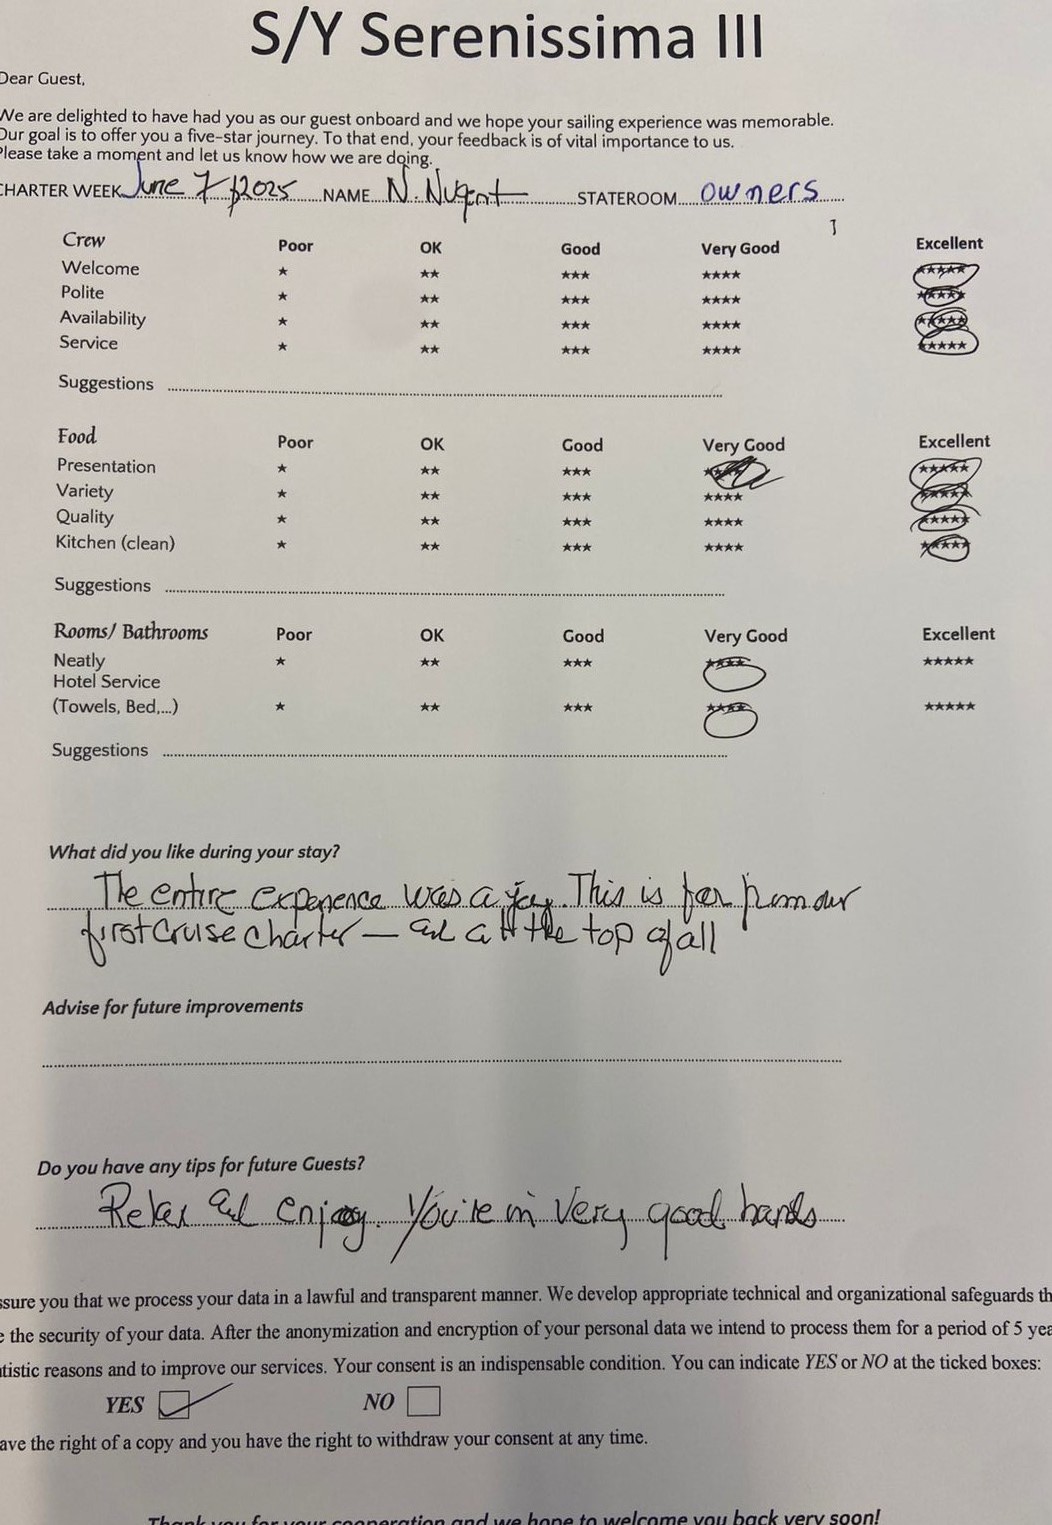 S/Y Serenissima III
Dear Guest,
We are delighted to have had you as our guest onboard and we hope your sailing experience was memorable.
Our goal is to offer you a five-star journey. To that end, your feedback is of vital importance to us.
Please take a moment and let us know how we are doing.
CHARTER WEEK June 7 2025 NAME N. Nugent STATEROOM owners
Crew Poor OK Good Very Good Excellent
Welcome ★ ★★ ★★★ ★★★★ ★★★★★
Polite ★ ★★ ★★★ ★★★★ ★★★★★
Availability ★ ★★ ★★★ ★★★★ ★★★★★
Service ★ ★★ ★★★ ★★★★ ★★★★★
Suggestions
Food Poor OK Good Very Good Excellent
Presentation ★ ★★ ★★★ ★★★★ ★★★★★
Variety ★ ★★ ★★★ ★★★★ ★★★★★
Quality ★ ★★ ★★★ ★★★★ ★★★★★
Kitchen (clean) ★ ★★ ★★★ ★★★★ ★★★★★
Suggestions
Rooms/ Bathrooms Poor OK Good Very Good Excellent
Neatly ★ ★★ ★★★ ★★★★ ★★★★★
Hotel Service
(Towels, Bed,...) ★ ★★ ★★★ ★★★★ ★★★★★
Suggestions
What did you like during your stay?
The entire experience was a joy. This is far from our
first cruise charter — and at the top of all
Advise for future improvements
Do you have any tips for future Guests?
Relax and enjoy. You're in very good hands
ssure you that we process your data in a lawful and transparent manner. We develop appropriate technical and organizational safeguards th
e the security of your data. After the anonymization and encryption of your personal data we intend to process them for a period of 5 yea
tistic reasons and to improve our services. Your consent is an indispensable condition. You can indicate YES or NO at the ticked boxes:
YES NO
ave the right of a copy and you have the right to withdraw your consent at any time.
Thank you for your cooperation and we hope to welcome you back very soon!